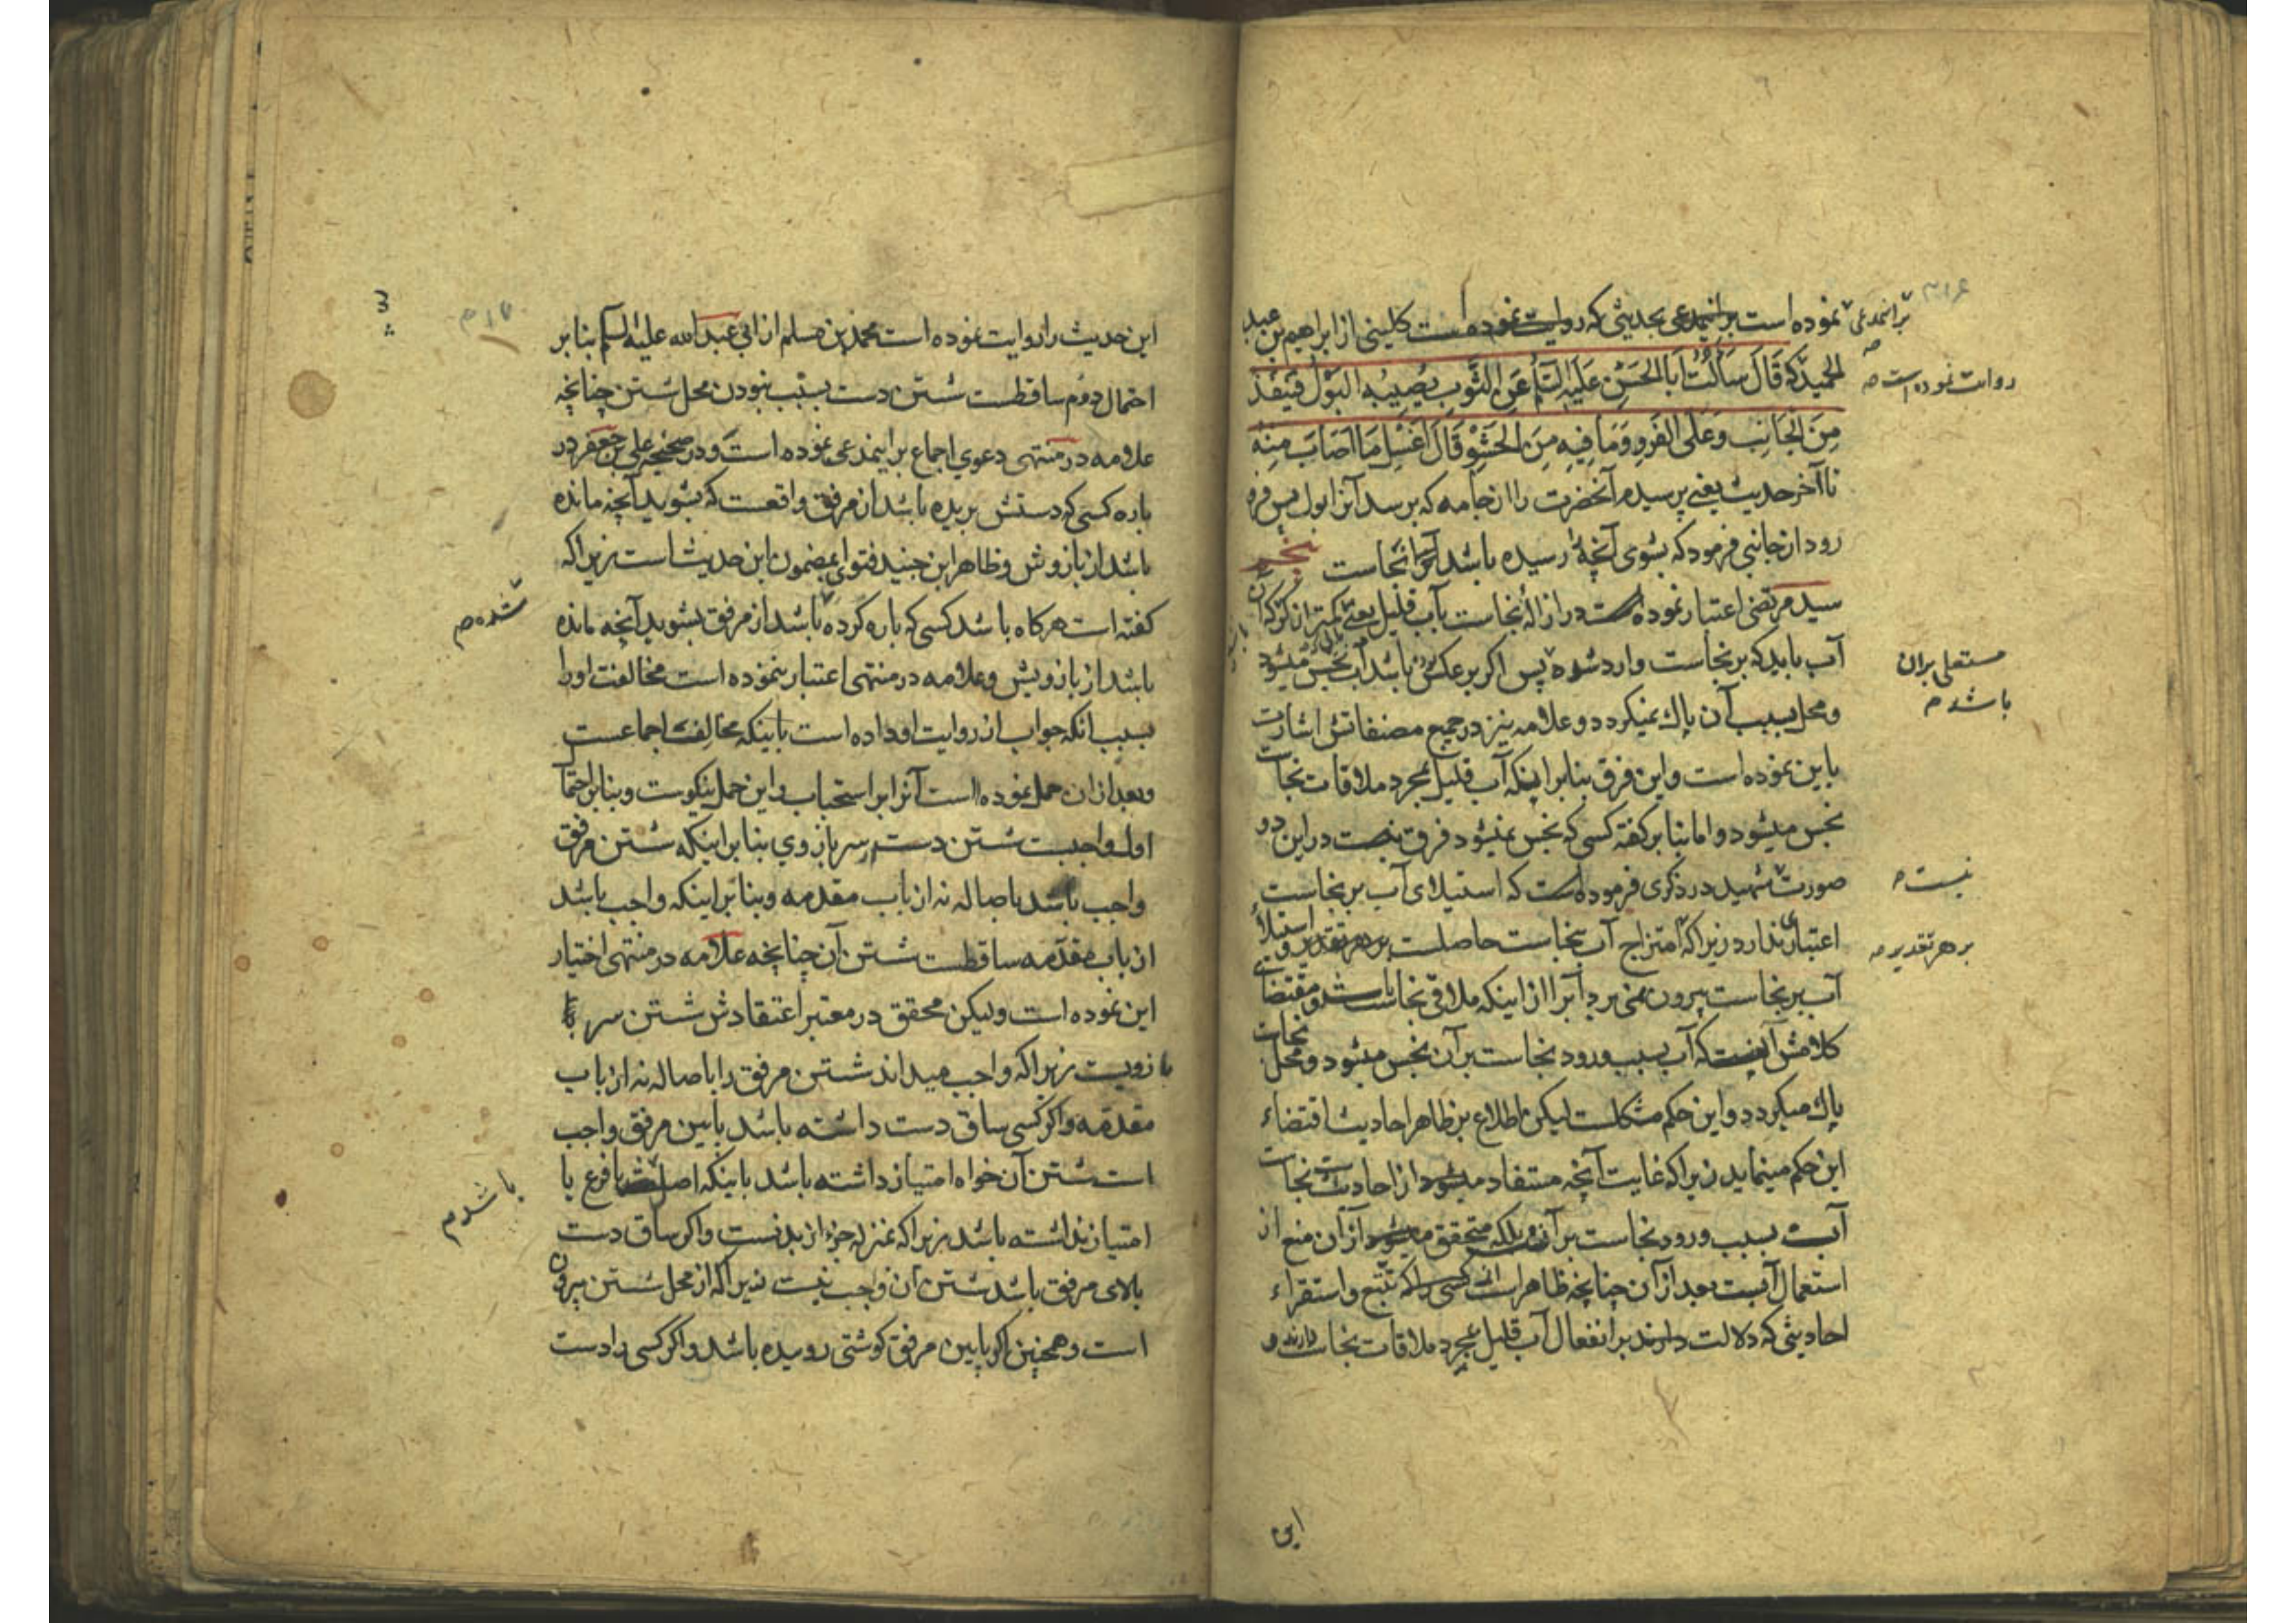 نموده است برانمدعی بحدیثی که روایت نموده است کلینی از ابراهیم بن عبد
الحمید که قَالَ سَاَلْتُ اَبَا الحَسَنِ عَلَیْهِ السَّلَمُ عَنِ الثَّوبِ یُصِیبُه البَوْلُ فَیَنفُذُ
مِنَ الجَانِبِ وَعَلَی الفَروِ وَمَا فِیهِ مِنَ الحَشْوِ قَالَ اغْسِل مَا اَصَابَ مِنْهُ
تا آخر حدیث یعنی پرسیدم آنحضرت را از جامه که برسد آنرا بول پس فرو
رود از جانبی فرمود که بشوی آنچه رسیده باشد آنرا نجاست
سید مرتضی اعتبار نموده است در ازالۀ نجاست بآب قلیل یعنی کمتر از کر که آن
آب باید که بر نجاست وارد شود پس اکر برعکس باشد آب نجس میشود
و محل بسبب آن پاك نمیکردد و علامه نیز در جمیع مصنفاتش اشارت
باین نموده است و این فرق بنابر اینکه آب قلیل بمجرد ملاقات نجاست
نجس میشود و اما بنا بر کفتۀ کسی که نجس نمیشود فرق نیست در این دو
صورت شهید در ذکری فرموده است که استیلای آب بر نجاست
اعتباری ندارد زیرا که امتزاج آب بنجاست حاصلست بر هر تقدیر و استیلاء
آب بر نجاست بیرون نمی برد آنرا از اینکه ملاقی نجاست باشد و مقتضای
کلامش آنست که آب بسبب ورود نجاست بر آن نجس میشود و محل نجاست
پاك میکردد و این حکم مشکلست لیکن اطلاع بر ظاهر احادیث اقتضاء
این حکم مینماید زیرا که غایت آنچه مستفاد میشود از احادیث نجاست
آب بسبب ورود نجاست بر آن بلکه متحقق میشود از آن منع از
استعمال آبست بعد از آن چنانچه ظاهر است کسی را که تتبع و استقراء
احادیثی که دلالت دارند بر انفعال آب قلیل بمجرد ملاقات نجاست
برانمدعی
روایت نموده است
مستعلی بران
باشد م
نیست
بر هر تقدیر
این
این حدیث را روایت نموده است محمد بن مسلم از ابی عبد الله علیه السلم بنا بر
احتمال دوم ساقطست شستن دست بسبب نبودن محل شستن چنانچه
علامه در منتهی دعوی اجماع بر اینمدعی نموده است و در صحیحۀ علی بن جعفر در
باره کسی که دستش بریده باشد از مرفق واقعست که بشوید آنچه مانده
باشد از بازوش و ظاهر ابن جنید فتوای بمضمون این حدیث است زیرا که
کفته است هرکاه باشد کسی که پاره کرده باشد از مرفق بشوید آنچه مانده
باشد از بازویش و علامه در منتهی اعتبار ننموده است مخالفت او را
بسبب انکه جواب از روایت او داده است باینکه مخالف اجماعست
و بعد از ان حمل نموده است آنرا بر استحباب و این حمل نیکوست و بنا بر احتمال
اول واجبست شستن دست سر بازوی بنا بر اینکه شستن مرفق
واجب باشد باصاله نه از باب مقدمه و بنا بر اینکه واجب باشد
از باب مقدمه ساقطست شستن آن چنانچه علامه در منتهی اختیار
این نموده است ولیکن محقق در معتبر اعتقادش شستن سر
بازویست زیرا که واجب میداند شستن مرفق را باصاله نه از باب
مقدمه و اکر کسی ساق دست داشته باشد پایین مرفق واجب
است شستن آن خواه امتیاز داشته باشد باینکه اصل یا فرع یا
امتیاز نداشته باشد زیرا که بمنزله جزء از بدنست و اکر ساق دست
بالای مرفق باشد شستن آن واجب نیست زیرا که از محل شستن بیرون
است و همچنین اکر پایین مرفق کوشتی روییده باشد و اکر کسی را دست
شده م
باشد م